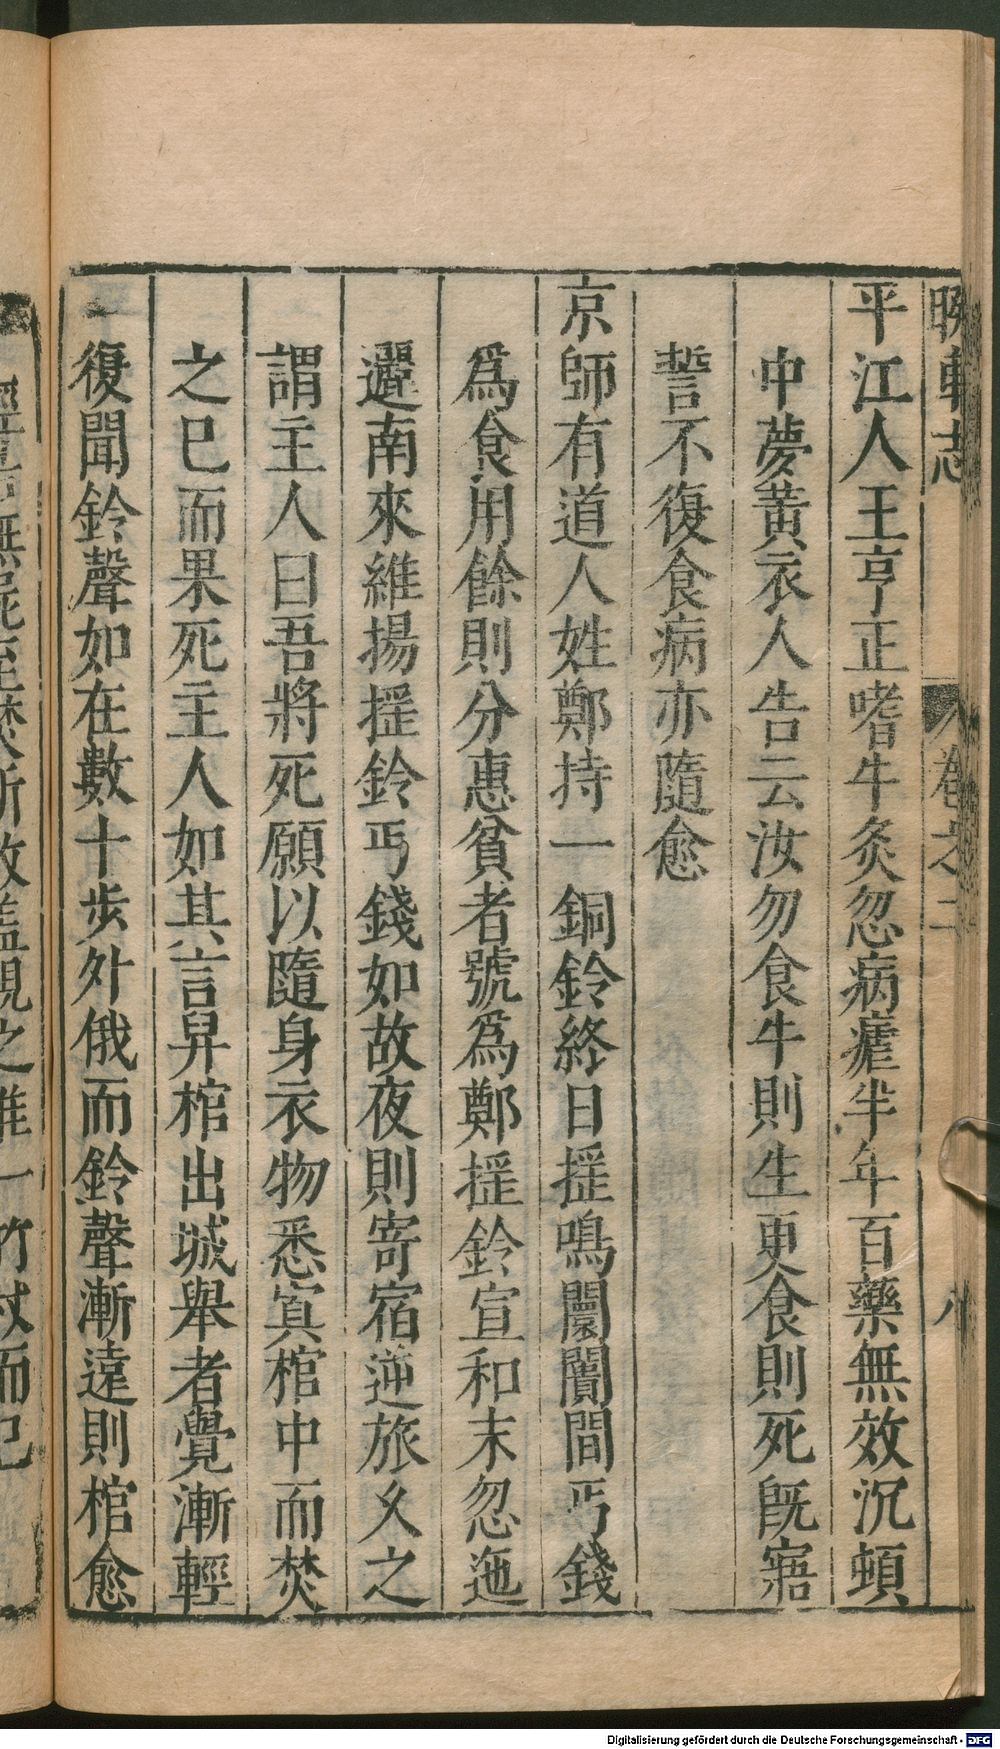 睽車志 卷之二 八
平江人王亨正嗜牛炙忽病瘧半年百藥無效沉頓
中夢黃衣人告云汝勿食牛則生更食則死旣寤
誓不復食病亦隨愈
京師有道人姓鄭持一銅鈴終日搖鳴闤闠間丐錢
爲食用餘則分惠貧者號爲鄭搖鈴宣和末忽迤
邐南來維揚搖鈴丐錢如故夜則寄宿逆旅久之
謂主人曰吾將死願以隨身衣物悉寘棺中而焚
之已而果死主人如其言舁棺出城舉者覺漸輕
復聞鈴聲如在數十步外俄而鈴聲漸遠則棺愈
之唯一竹杖而已
Digitalisierung gefördert durch die Deutsche Forschungsgemeinschaft - DFG